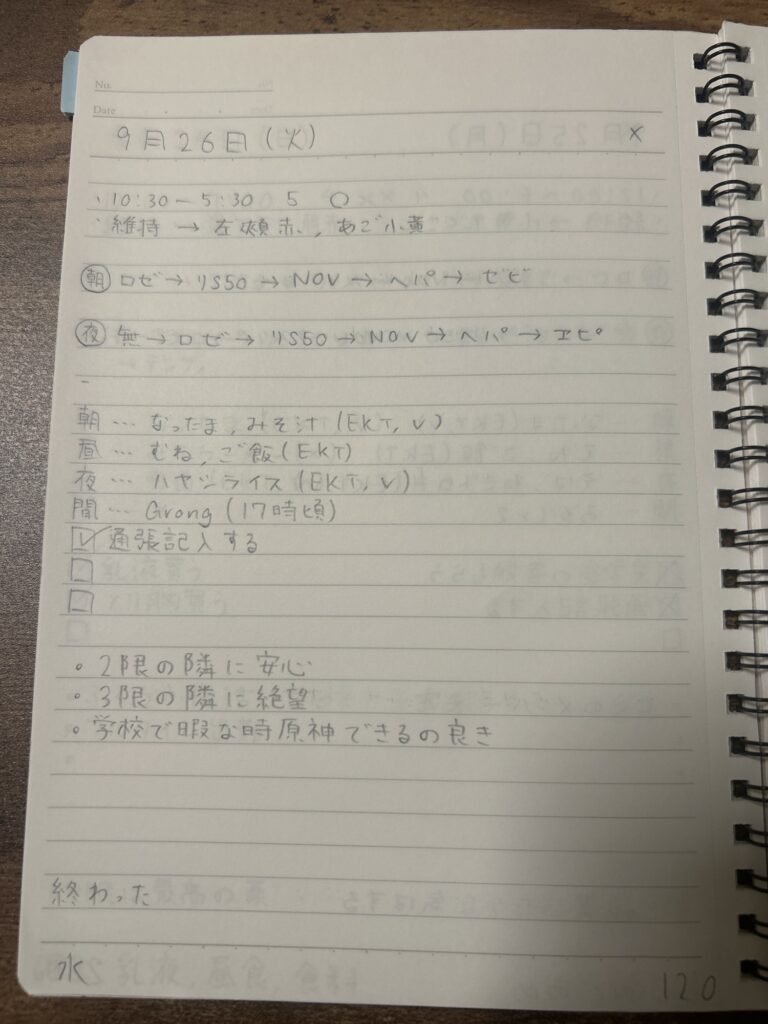 No.
Date
9月26日(火) ×
・10:30-5:30 5 ○
・維持 → 左頬赤, あご小黄
朝 ロゼ→リS50→NOV→ヘパ→ゼビ
夜 無→ロゼ→リS50→NOV→ヘパ→エピ
-
朝… なったま, みそ汁(EKT, V)
昼… むね, ご飯(EKT)
夜… ハヤシライス(EKT, V)
間… Grong(17時頃)
通張記入する
乳液買う
とり胸買う
・2限の隣に安心
・3限の隣に絶望
・学校で暇な時原神できるの良き
終わった
水
120